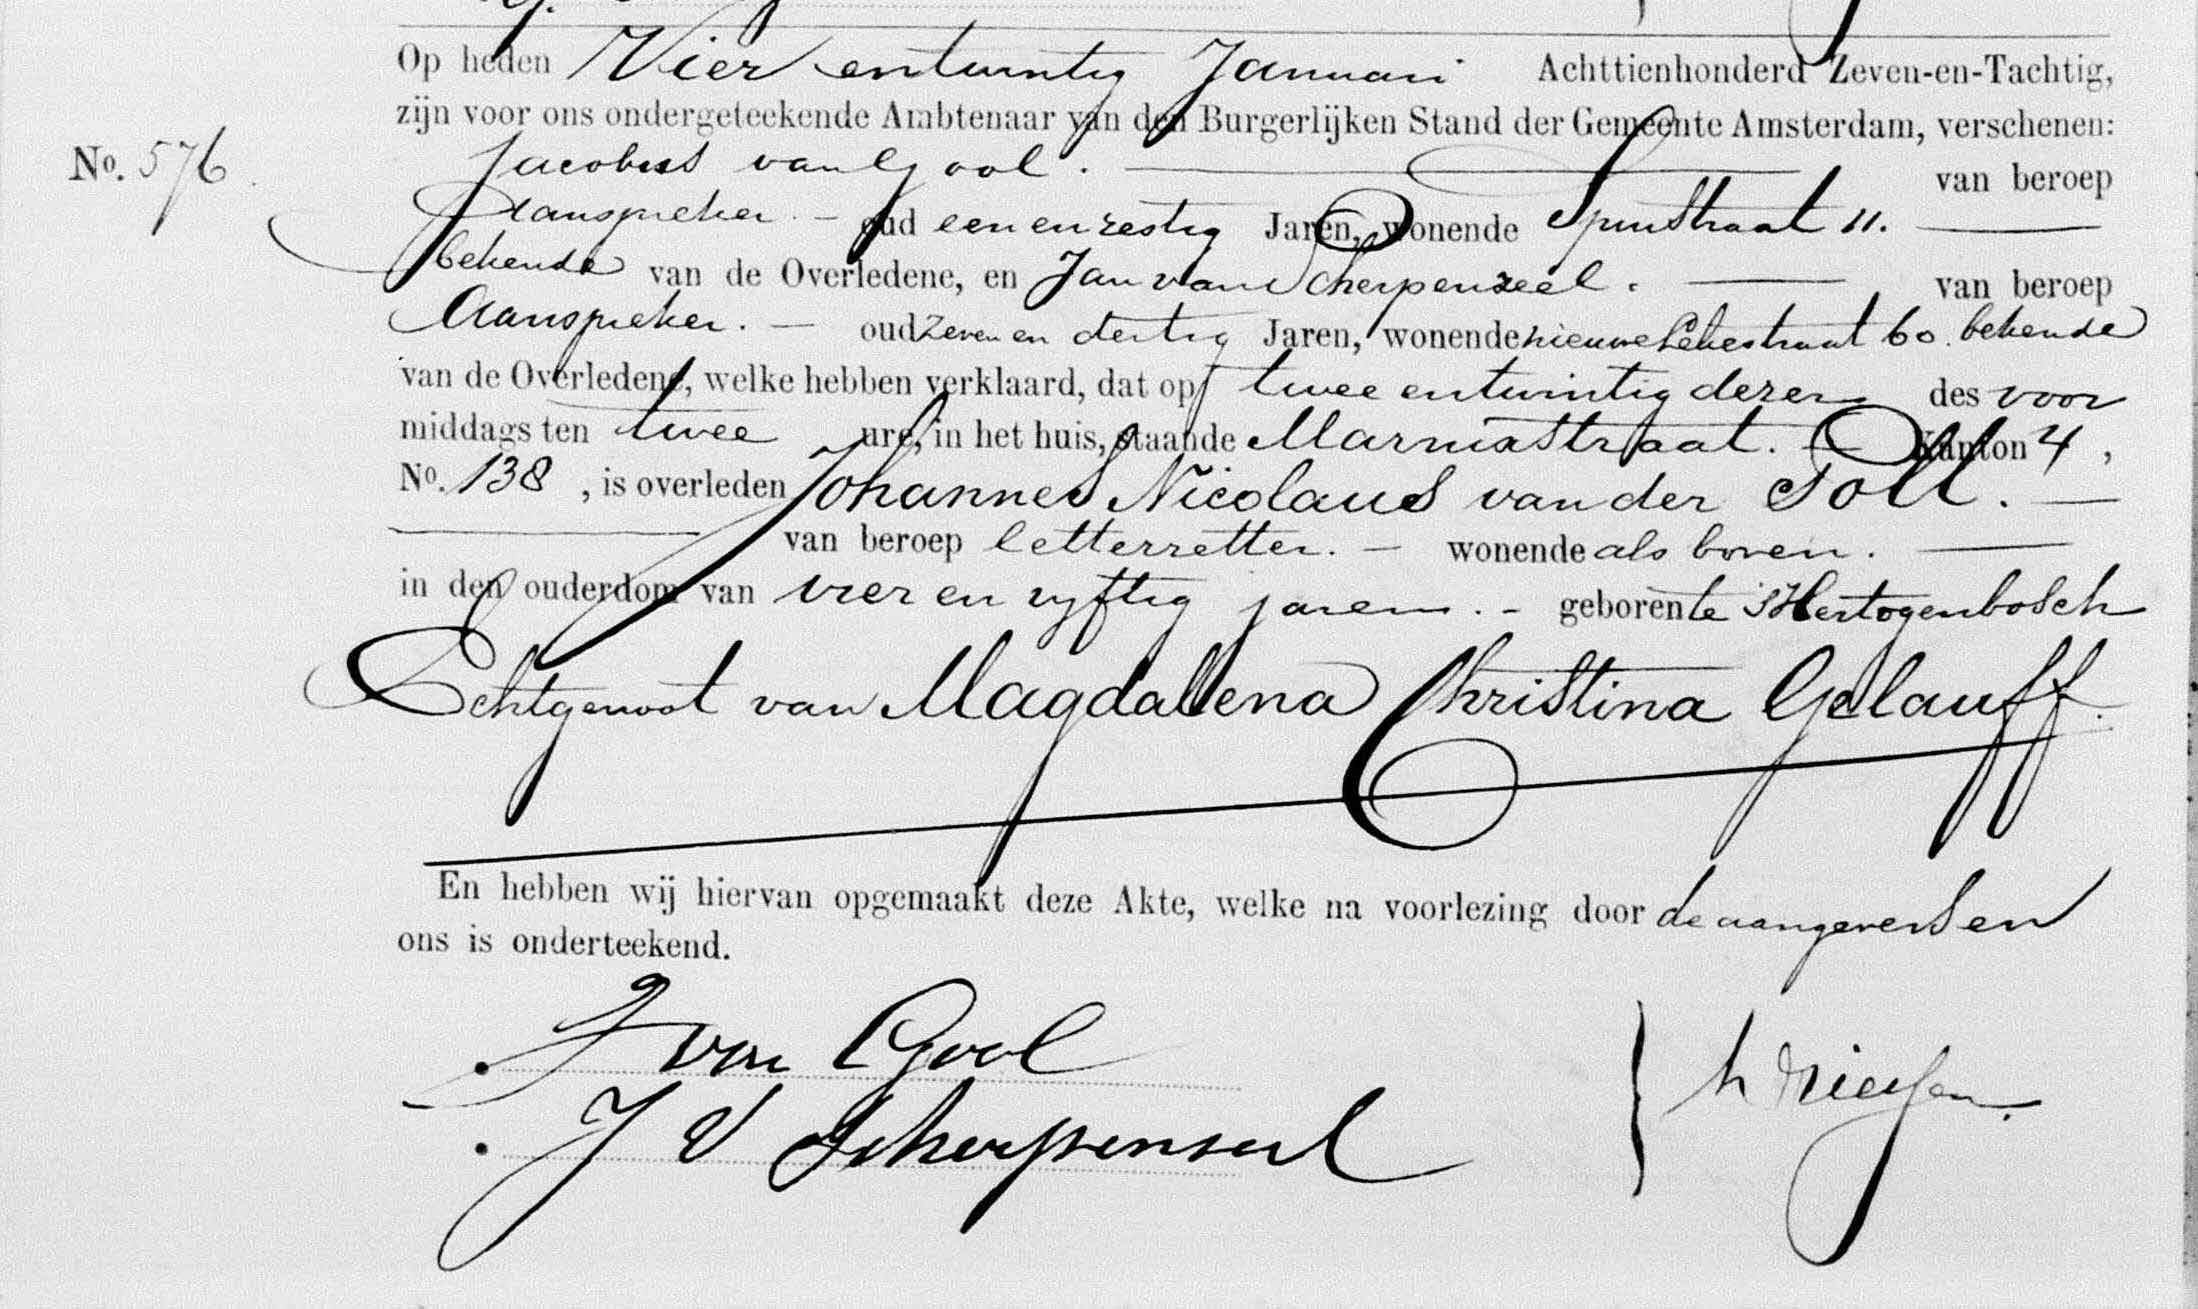 Op heden Vier entwintig Januari Achttienhonderd Zeven-en-Tachtig,
zijn voor ons ondergeteekende Ambtenaar van den Burgerlijken Stand der Gemeente Amsterdam, verschenen:
No. 576. Jacobus van Gool. van beroep
Aanspreker. oud een en zestig Jaren, wonende Spuistraat 11.
bekende van de Overledene, en Jan van Scherpenzeel. van beroep
Aanspreker. oud zeven en dertig Jaren, wonende nieuwe Leliestraat 60. bekende
van de Overledene, welke hebben verklaard, dat op twee entwintig dezer des voor
middags ten twee ure, in het huis, staande Marnixstraat. Kanton 4,
No. 138, is overleden Johannes Nicolaus van der Poll.
van beroep letterzetter. wonende als boven.
in den ouderdom van vier en vyftig jaren. geboren te 'sHertogenbosch
Echtgenoot van Magdalena Christina Gelauff.
En hebben wij hiervan opgemaakt deze Akte, welke na voorlezing door de aangevers en
ons is onderteekend.
J van Gool
J V Scherpenseel